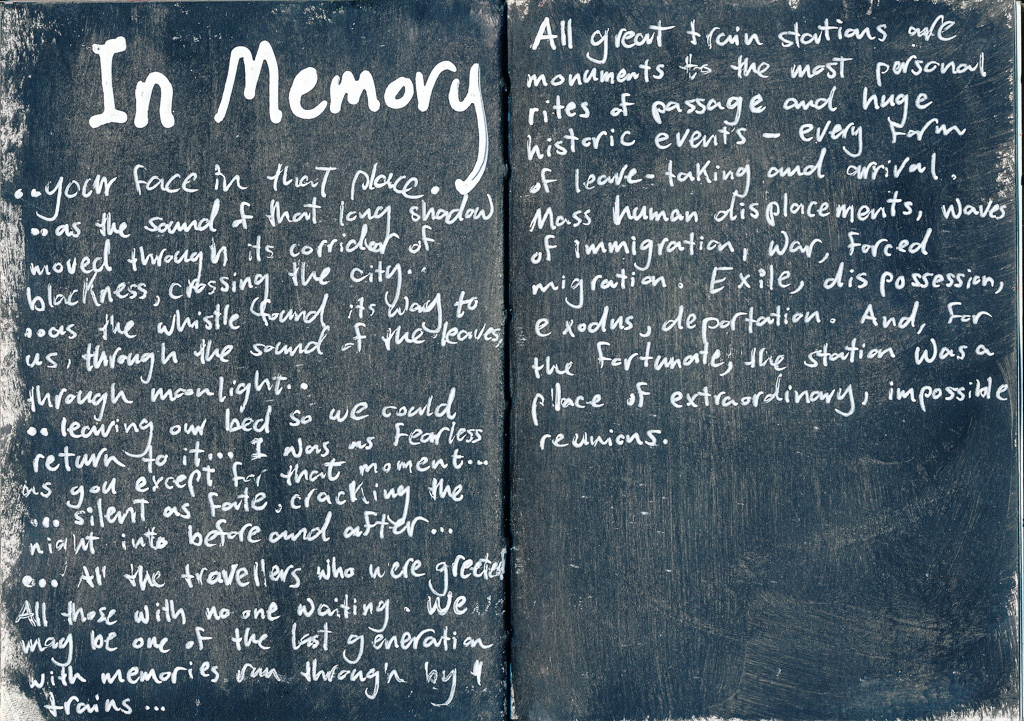 In Memory
..your face in that place.
..as the sound of that long shadow
moved through its corridor of
blackness, crossing the city..
..as the whistle found its way to
us, through the sound of the leaves,
through moonlight..
.. leaving our bed so we could
return to it... I was as fearless
as you except for that moment...
... silent as fate, cracking the
night into before and after...
... All the travellers who were greeted
All those with no one waiting. We
may be one of the last generation
with memories run through'n by
trains...
All great train stations are
monuments to the most personal
rites of passage and huge
historic events – every form
of leave-taking and arrival.
Mass human displacements, waves
of immigration, war, forced
migration. Exile, dispossession,
exodus, deportation. And, for
the fortunate, the station was a
place of extraordinary, impossible
reunions.